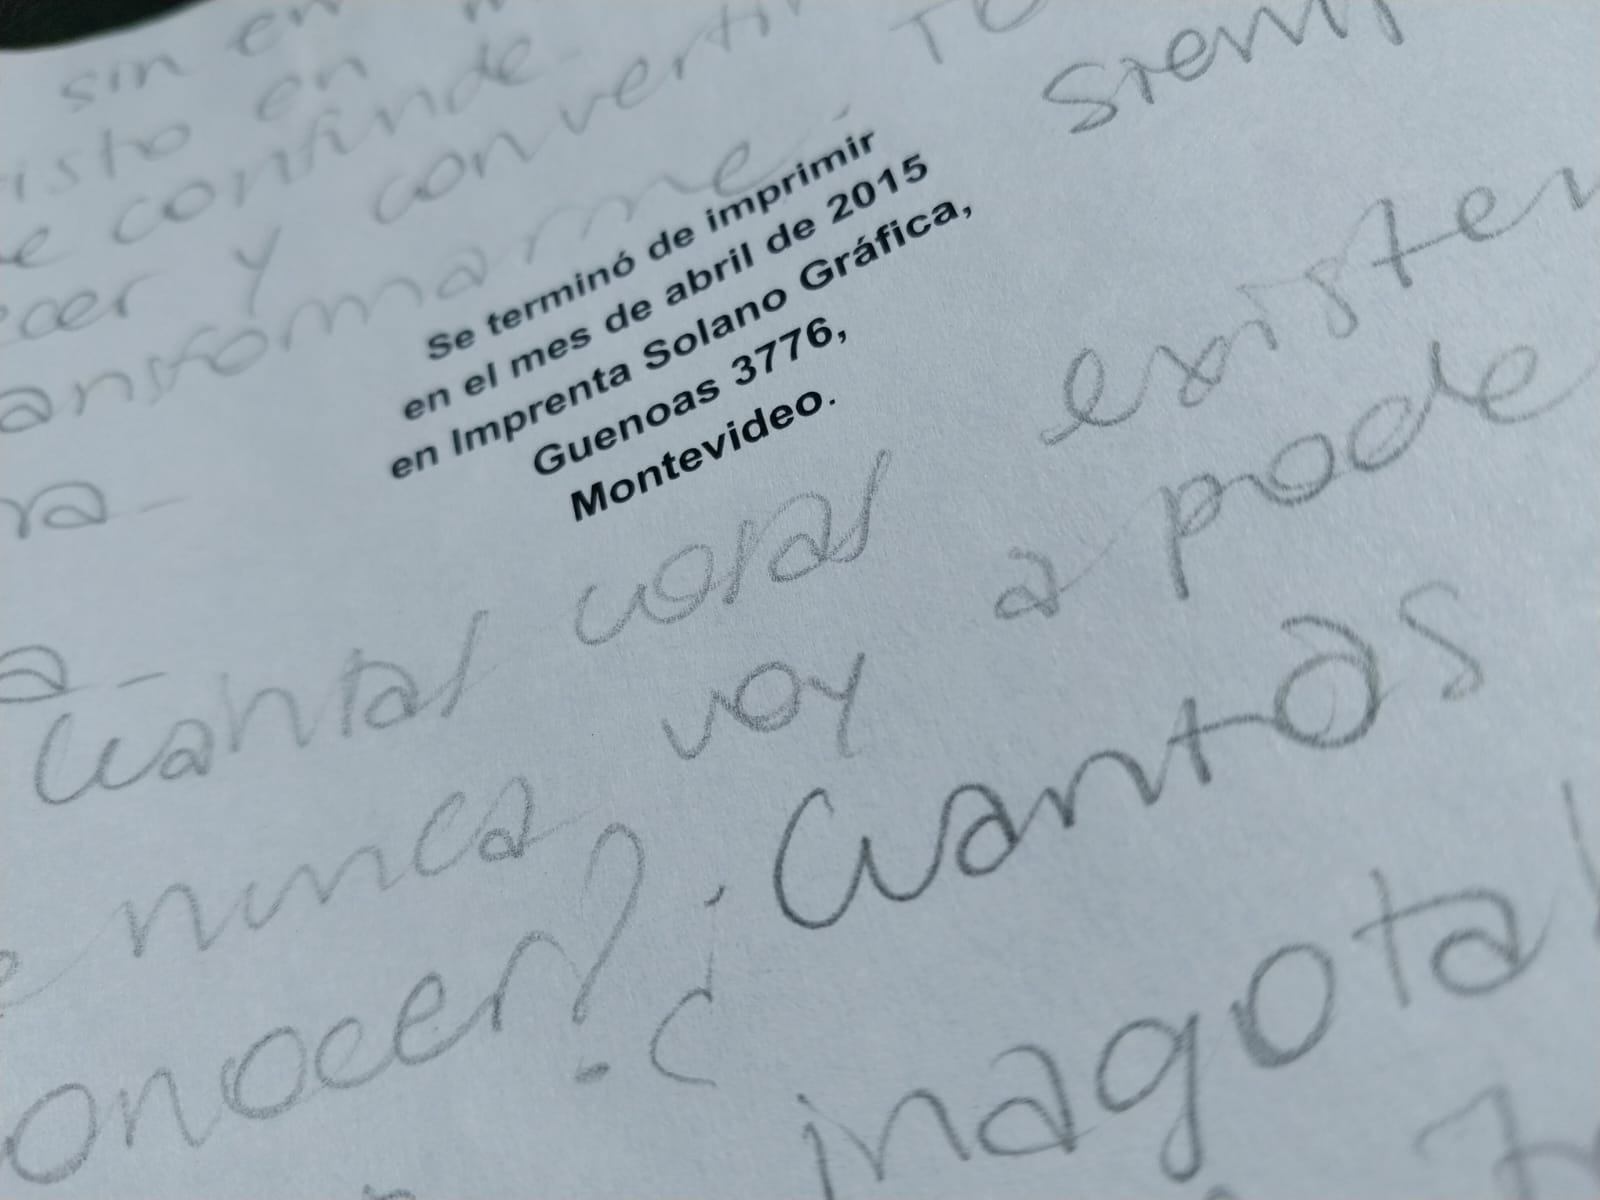 sin en
en
confunde
y convertir
siemp
Se terminó de imprimir
en el mes de abril de 2015
en Imprenta Solano Gráfica,
Guenoas 3776,
Montevideo.
cuantas cosas existen
nunca voy a pode
onocer? ¿Cuantas
inagota